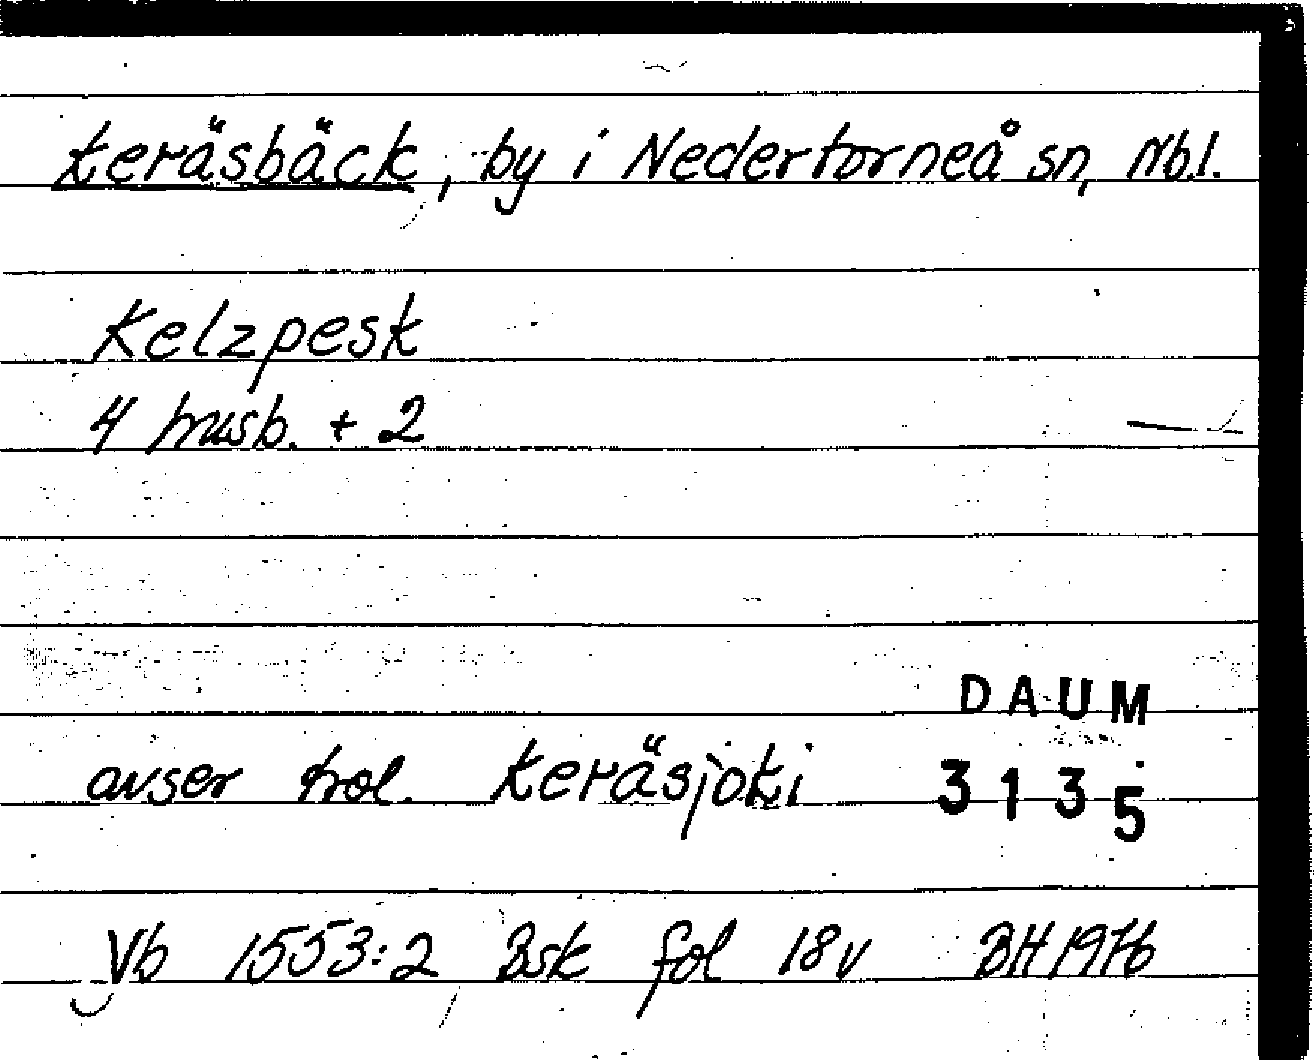 Keräsbäck, by i Nedertorneå sn, Nbl.
Kelzpesk
4 husb. + 2
DAUM
avser trol. Keräsjoki
3135
Vb 1553:2 Bsk fol 18v BH 1976